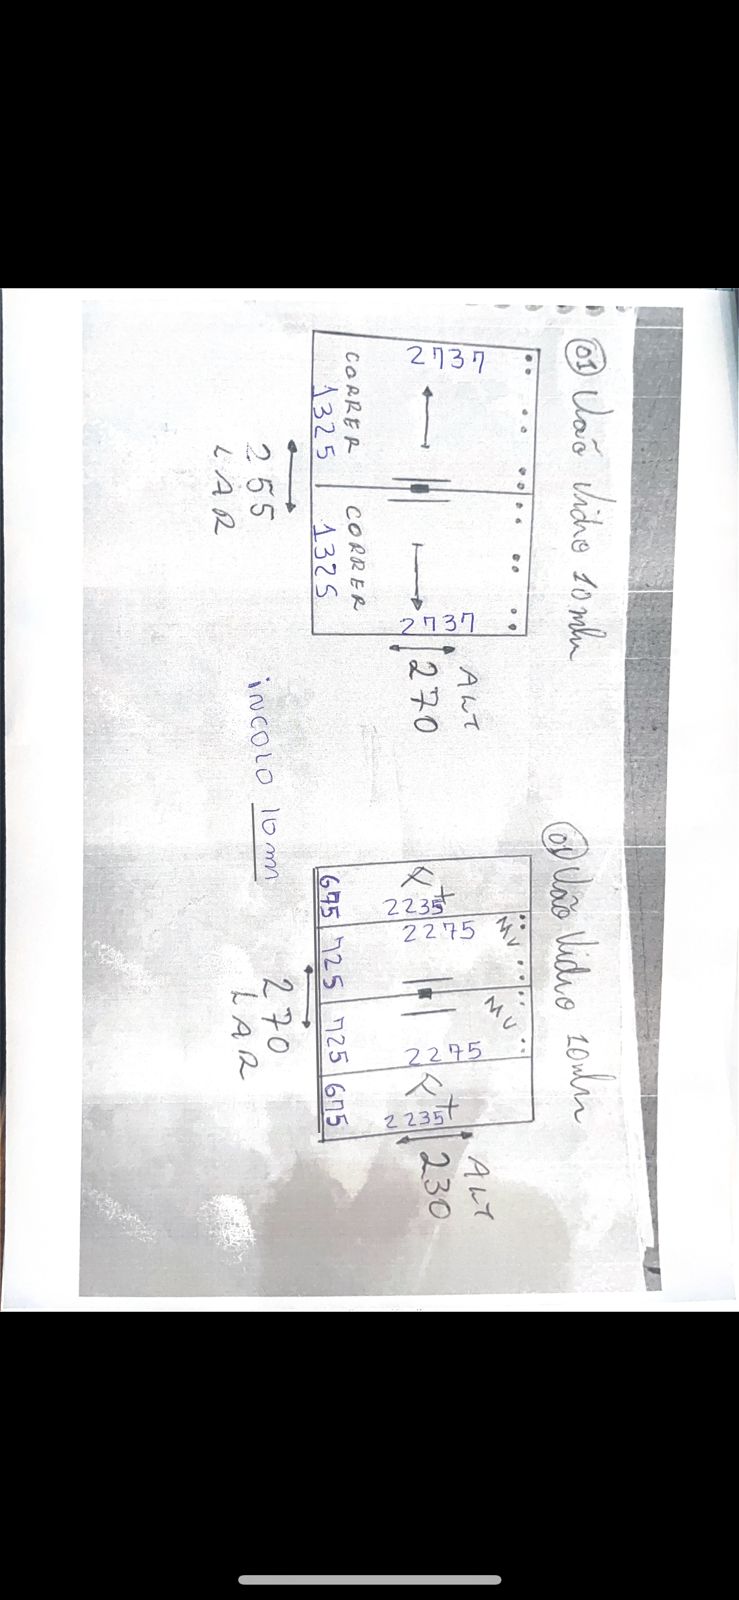 01 Vão Vidro 10mm
2737
CORRER
1325
CORRER
1325
2737
255
LAR
ALT
270
incolo 10mm
01 Vão Vidro 10mm
2235
2275
MV
MV
2275
2235
675
725
725
675
270
LAR
ALT
230